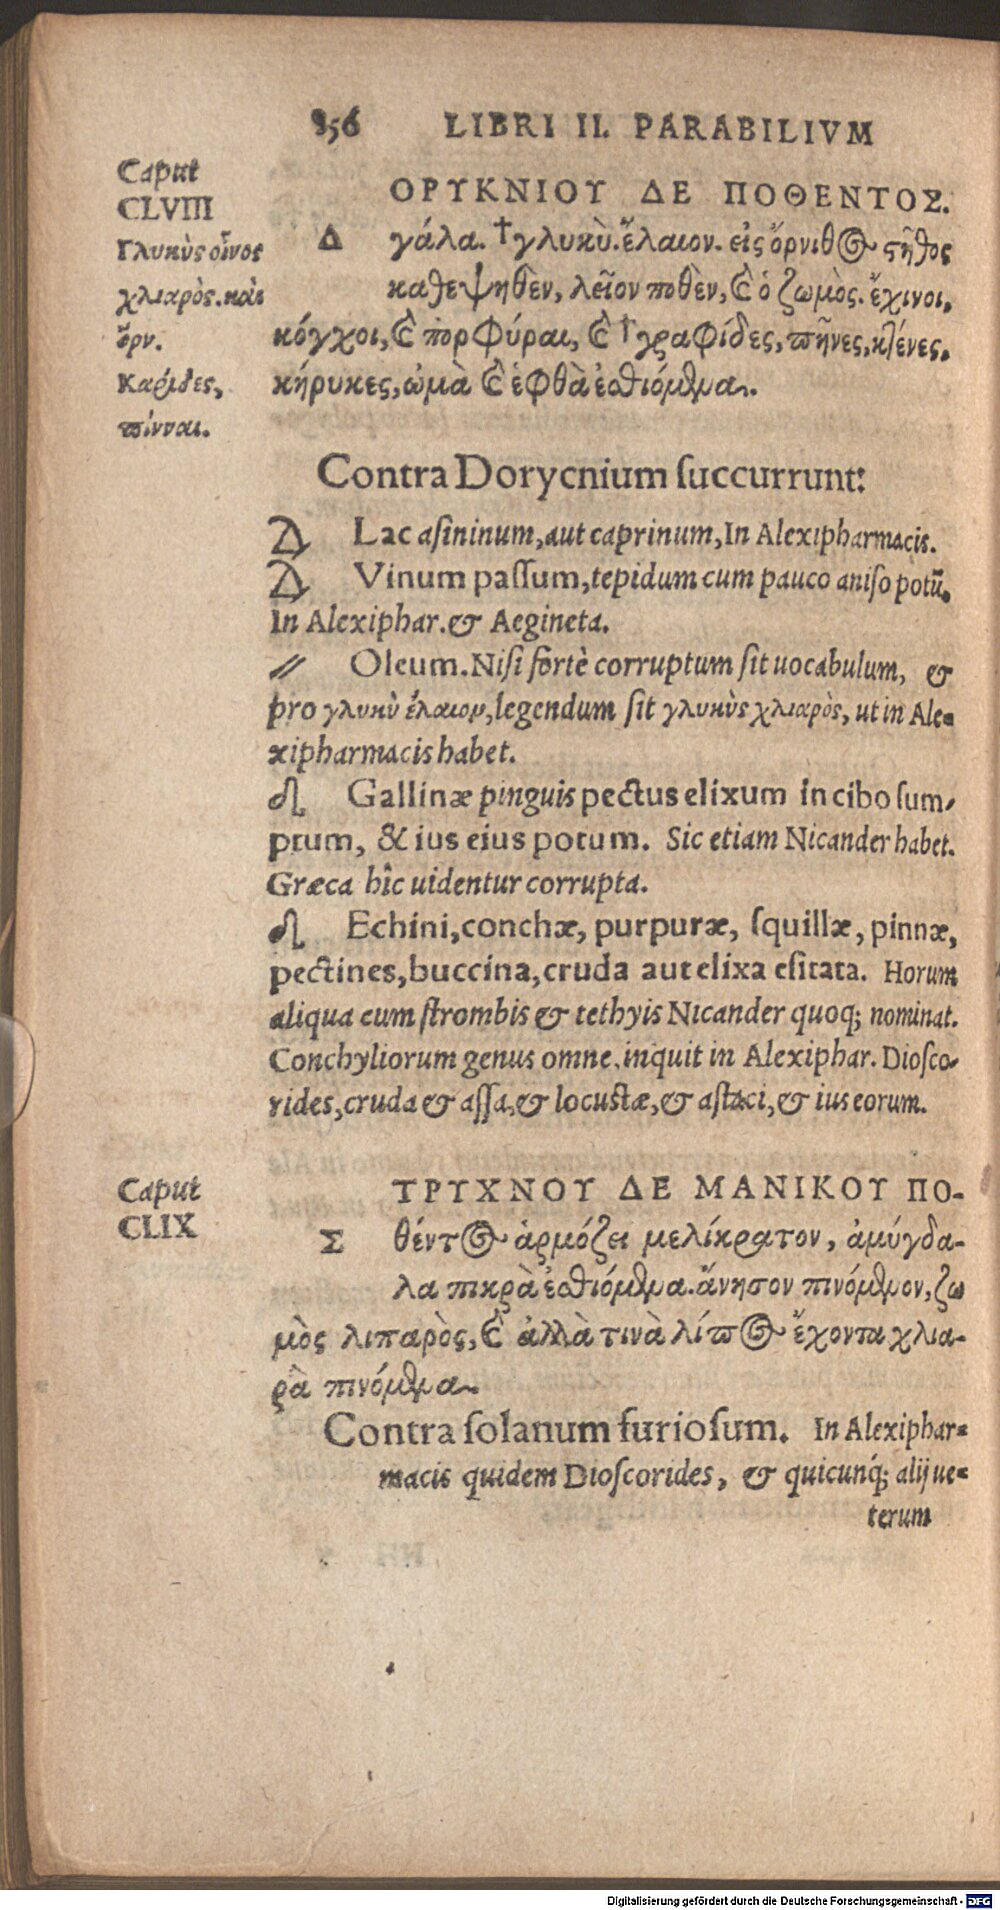 856 LIBRI II. PARABILIVM
Caput
CLVIII
Γλυκὺς οἶνος
χλιαρὸς. καὶ
ὄρν.
Καρίδες,
πίνναι.
Δ ΟΡΥΚΝΙΟΥ ΔΕ ΠΟΘΕΝΤΟΣ.
γάλα. †γλυκὺ. ἔλαιον. εἰς ὄρνιθος στῆθος
καθεψηθὲν, λεῖον ποθὲν, καὶ ὁ ζωμὸς. ἔχινοι,
κόγχοι, καὶ πορφύραι, καὶ †γραφίδες, πῆνες, κτένες,
κήρυκες, ὠμὰ καὶ ἑφθὰ ἐσθιόμενα.
Contra Dorycnium ſuccurrunt:
Δ Lac aſininum, aut caprinum, In Alexipharmacis.
Δ Vinum paſſum, tepidum cum pauco aniſo potũ.
In Alexiphar. & Aegineta.
// Oleum. Niſi fortè corruptum ſit uocabulum, &
pro γλυκὺ ἔλαιον, legendum ſit γλυκὺς χλιαρὸς, ut in Ale-
xipharmacis habet.
Gallinæ pinguis pectus elixum in cibo ſum-
ptum, & ius eius potum. Sic etiam Nicander habet.
Græca hîc uidentur corrupta.
Echini, conchæ, purpuræ, ſquillæ, pinnæ,
pectines, buccina, cruda aut elixa eſitata. Horum
aliqua cum ſtrombis & tethyis Nicander quoq; nominat.
Conchyliorum genus omne, inquit in Alexiphar. Dioſco-
rides, cruda & aſſa, & locuſtæ, & aſtaci, & ius eorum.
Caput
CLIX
Σ ΤΡΥΧΝΟΥ ΔΕ ΜΑΝΙΚΟΥ ΠΟ-
θέντος ἁρμόζει μελίκρατον, ἀμύγδα-
λα πικρὰ ἐσθιόμενα. ἄνησον πινόμενον, ζω
μὸς λιπαρὸς, καὶ ἀλλὰ τινὰ λίπος ἔχοντα χλια-
ρὰ πινόμενα.
Contra ſolanum furioſum. In Alexiphar-
macis quidem Dioſcorides, & quicunq; alij ue-
terum
Digitalisierung gefördert durch die Deutsche Forschungsgemeinschaft - DFG